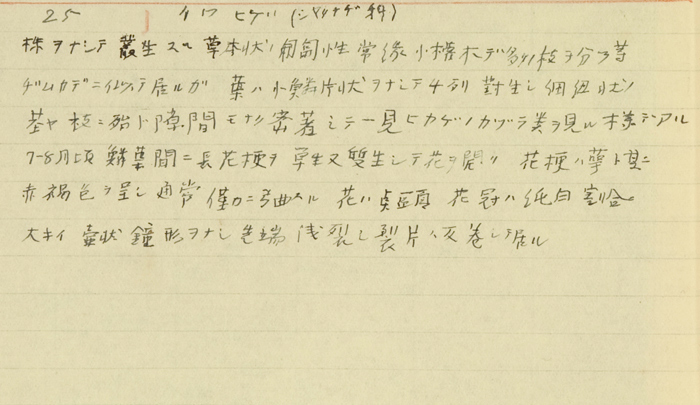 25 イワヒゲ(シャクナゲ科)
株ヲナシテ叢生スル草本状ノ匍匐性常緑小樌木デ多数ノ枝ヲ分ツ等
ヂムカデニ似テ居ルガ 葉ハ小鱗片状ヲナシテ4列 對生シ細紐状ノ
茎ヤ枝ニ殆ド隙間モナク密著シテ一見ヒカゲノカヅラ类ヲ見ル様デアル
7-8月頃鱗葉間ニ長花梗ヲ單生又双生シテ花ヲ開ク 花梗ハ萼ト共ニ
赤褐色ヲ呈シ通常僅カニ弯曲スル 花ハ点頭 花冠ハ純白割合ニ
大キイ壷状鐘形ヲナシ先端浅裂シ裂片ハ反巻シテ居ル